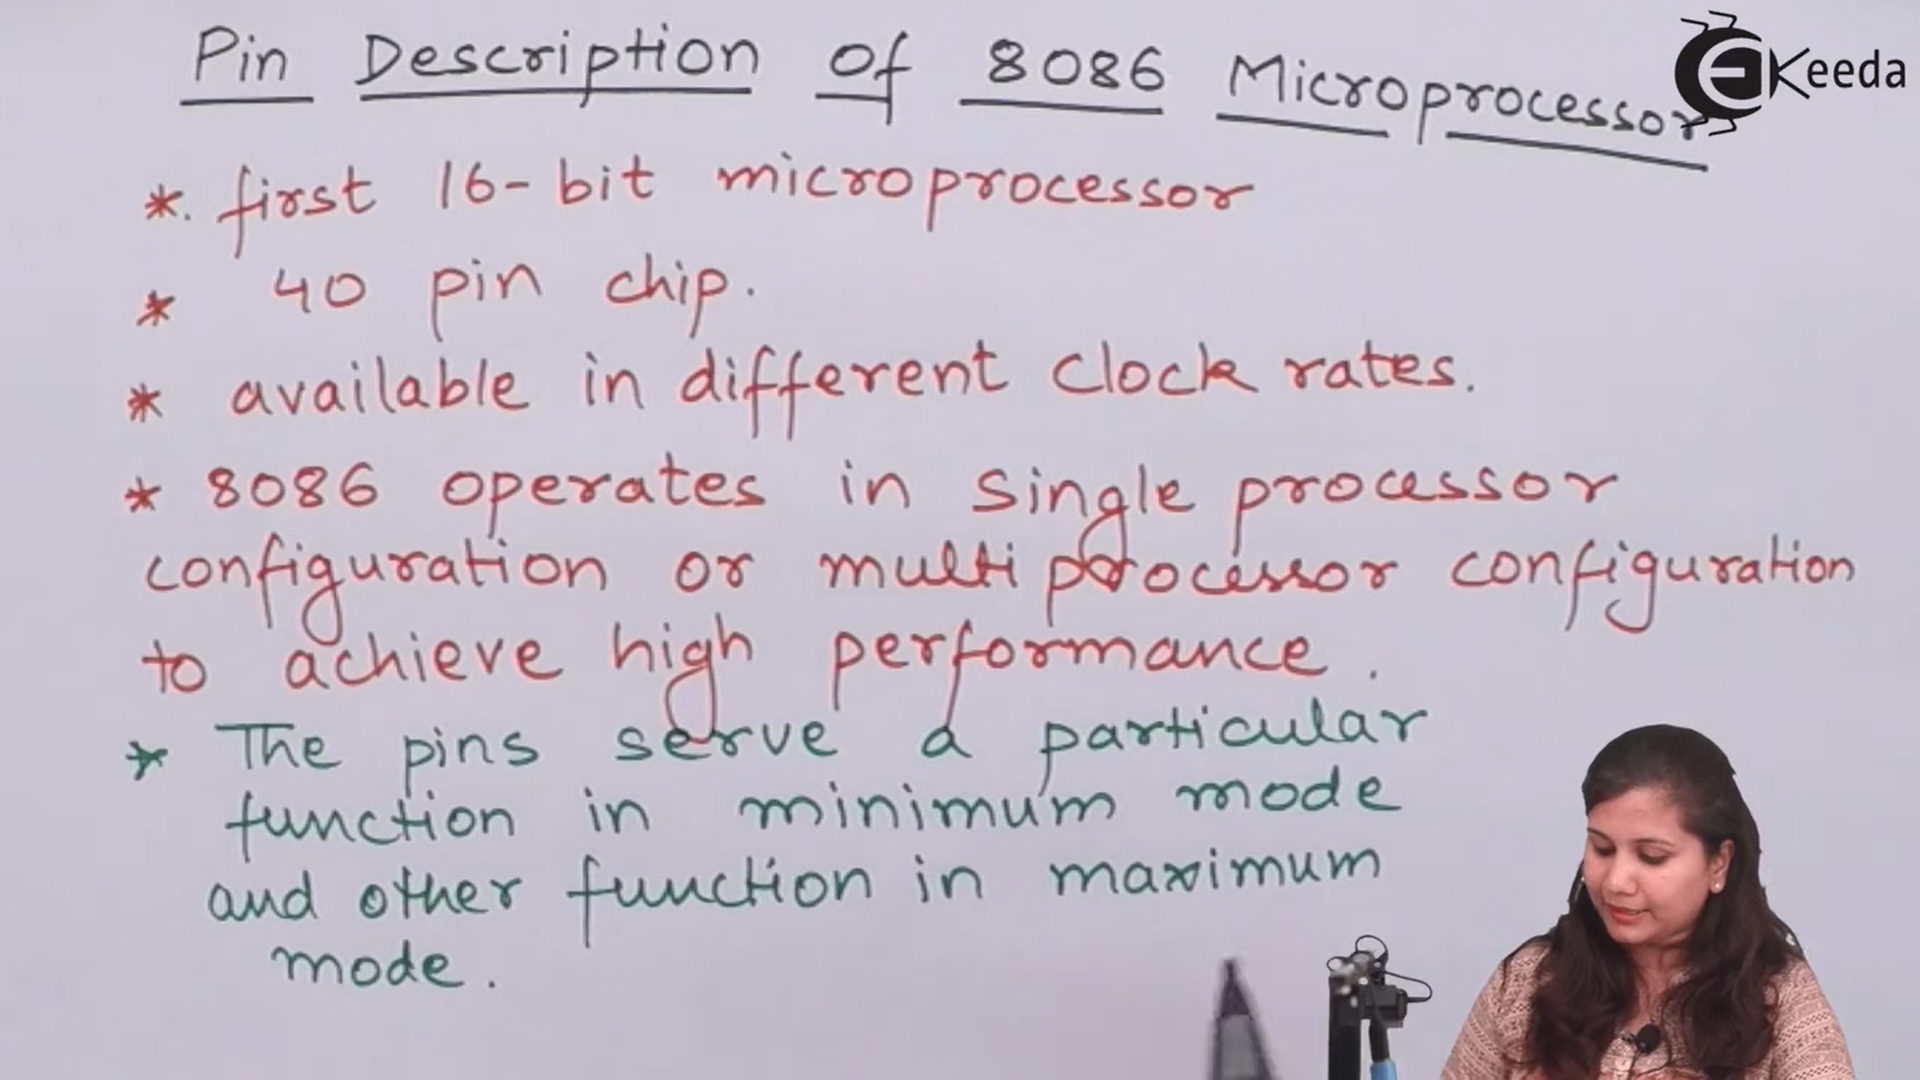 Pin Description Of 8086 Microprocessor
EKeeda
*. first 16-bit microprocessor
* 40 pin chip.
* available in different clock rates.
* 8086 operates in single processor
configuration or multi processor configuration
to achieve high performance.
* The pins serve a particular
function in minimum mode
and other function in maximum
mode.